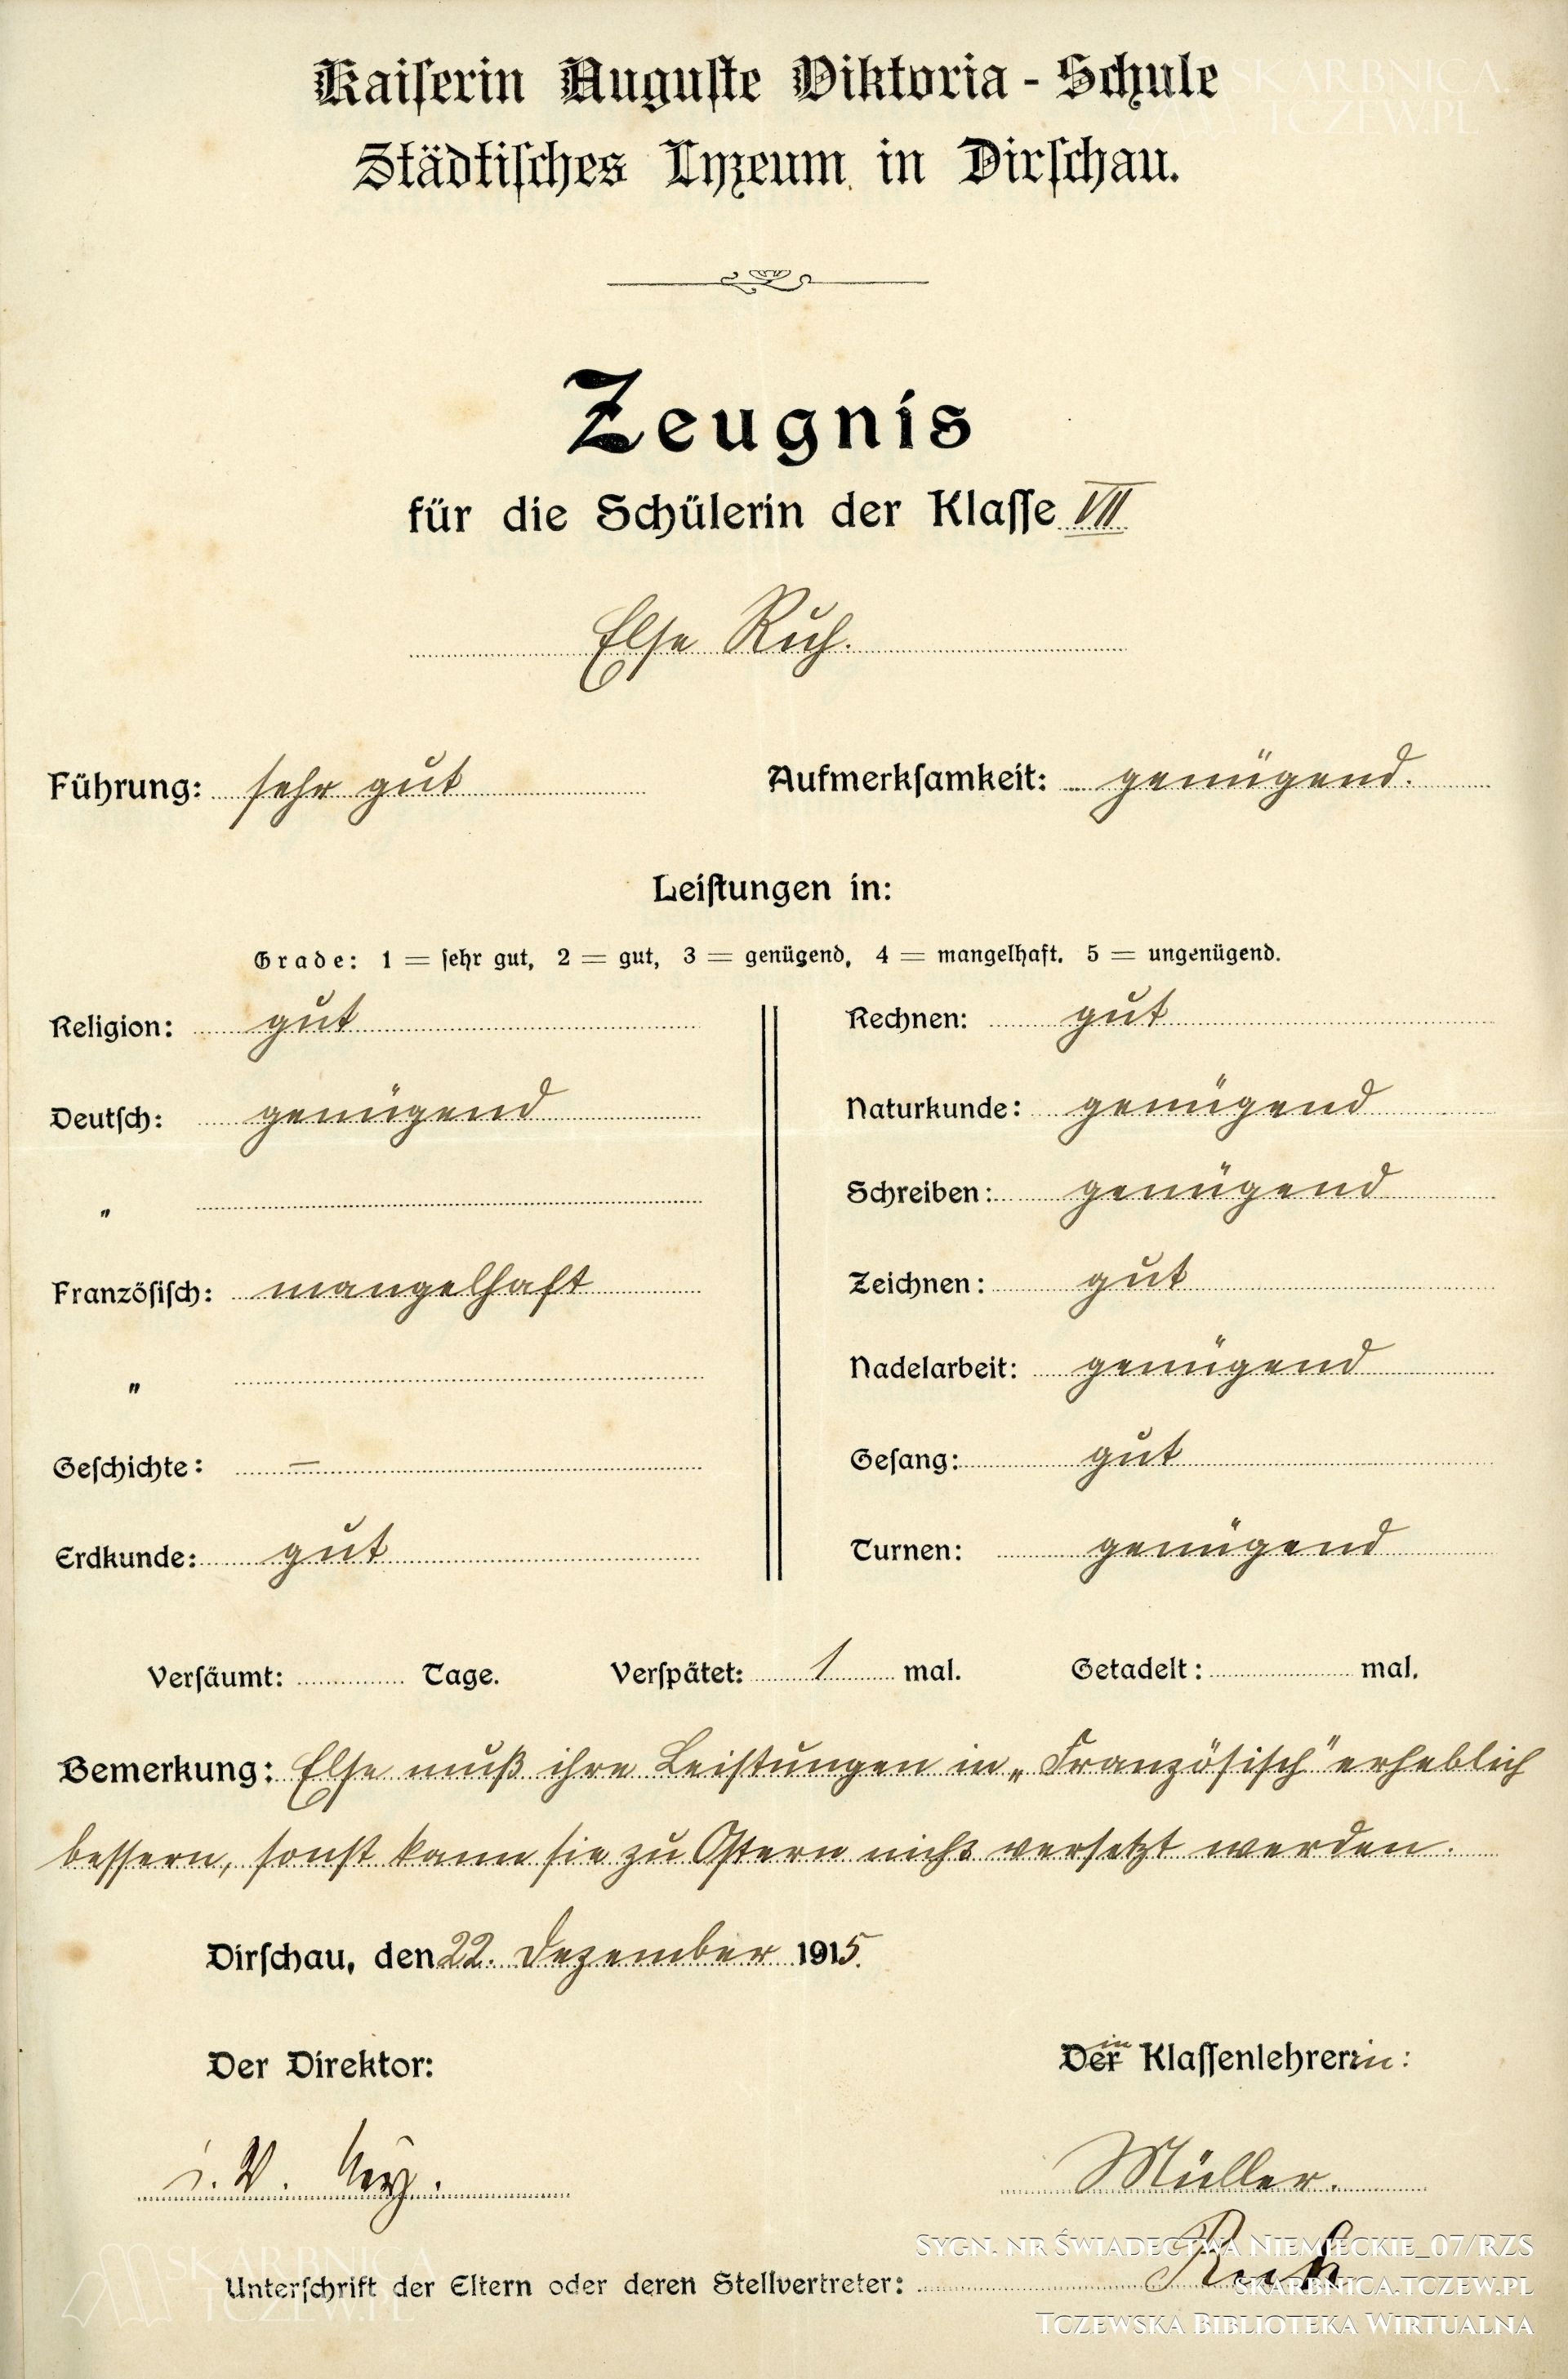 Kaiserin Auguste Viktoria - Schule
Städtisches Lyzeum in Dirschau.
SKARBNICA.
TCZEW.PL
Zeugnis
für die Schülerin der Klasse VII
Else Ruh.
Führung: sehr gut Aufmerksamkeit: genügend.
Leistungen in:
Grade: 1 = sehr gut, 2 = gut, 3 = genügend, 4 = mangelhaft. 5 = ungenügend.
Religion: gut
Deutsch: genügend
"
Französisch: mangelhaft
"
Geschichte: —
Erdkunde: gut
Rechnen: gut
Naturkunde: genügend
Schreiben: genügend
Zeichnen: gut
Nadelarbeit: genügend
Gesang: gut
Turnen: genügend
Versäumt: Tage. Verspätet: 1 mal. Getadelt: mal.
Bemerkung: Else muß ihre Leistungen in „Französisch" erheblich
bessern, sonst kann sie zu Ostern nicht versetzt werden.
Dirschau, den 22. Dezember 1915.
Der Direktor:
i. V.
Die Klassenlehrerin:
Müller.
Unterschrift der Eltern oder deren Stellvertreter: Ruh
SKARBNICA
TCZEW.PL
SYGN. NR ŚWIADECTWA NIEMIECKIE_07/RZS
SKARBNICA.TCZEW.PL
TCZEWSKA BIBLIOTEKA WIRTUALNA